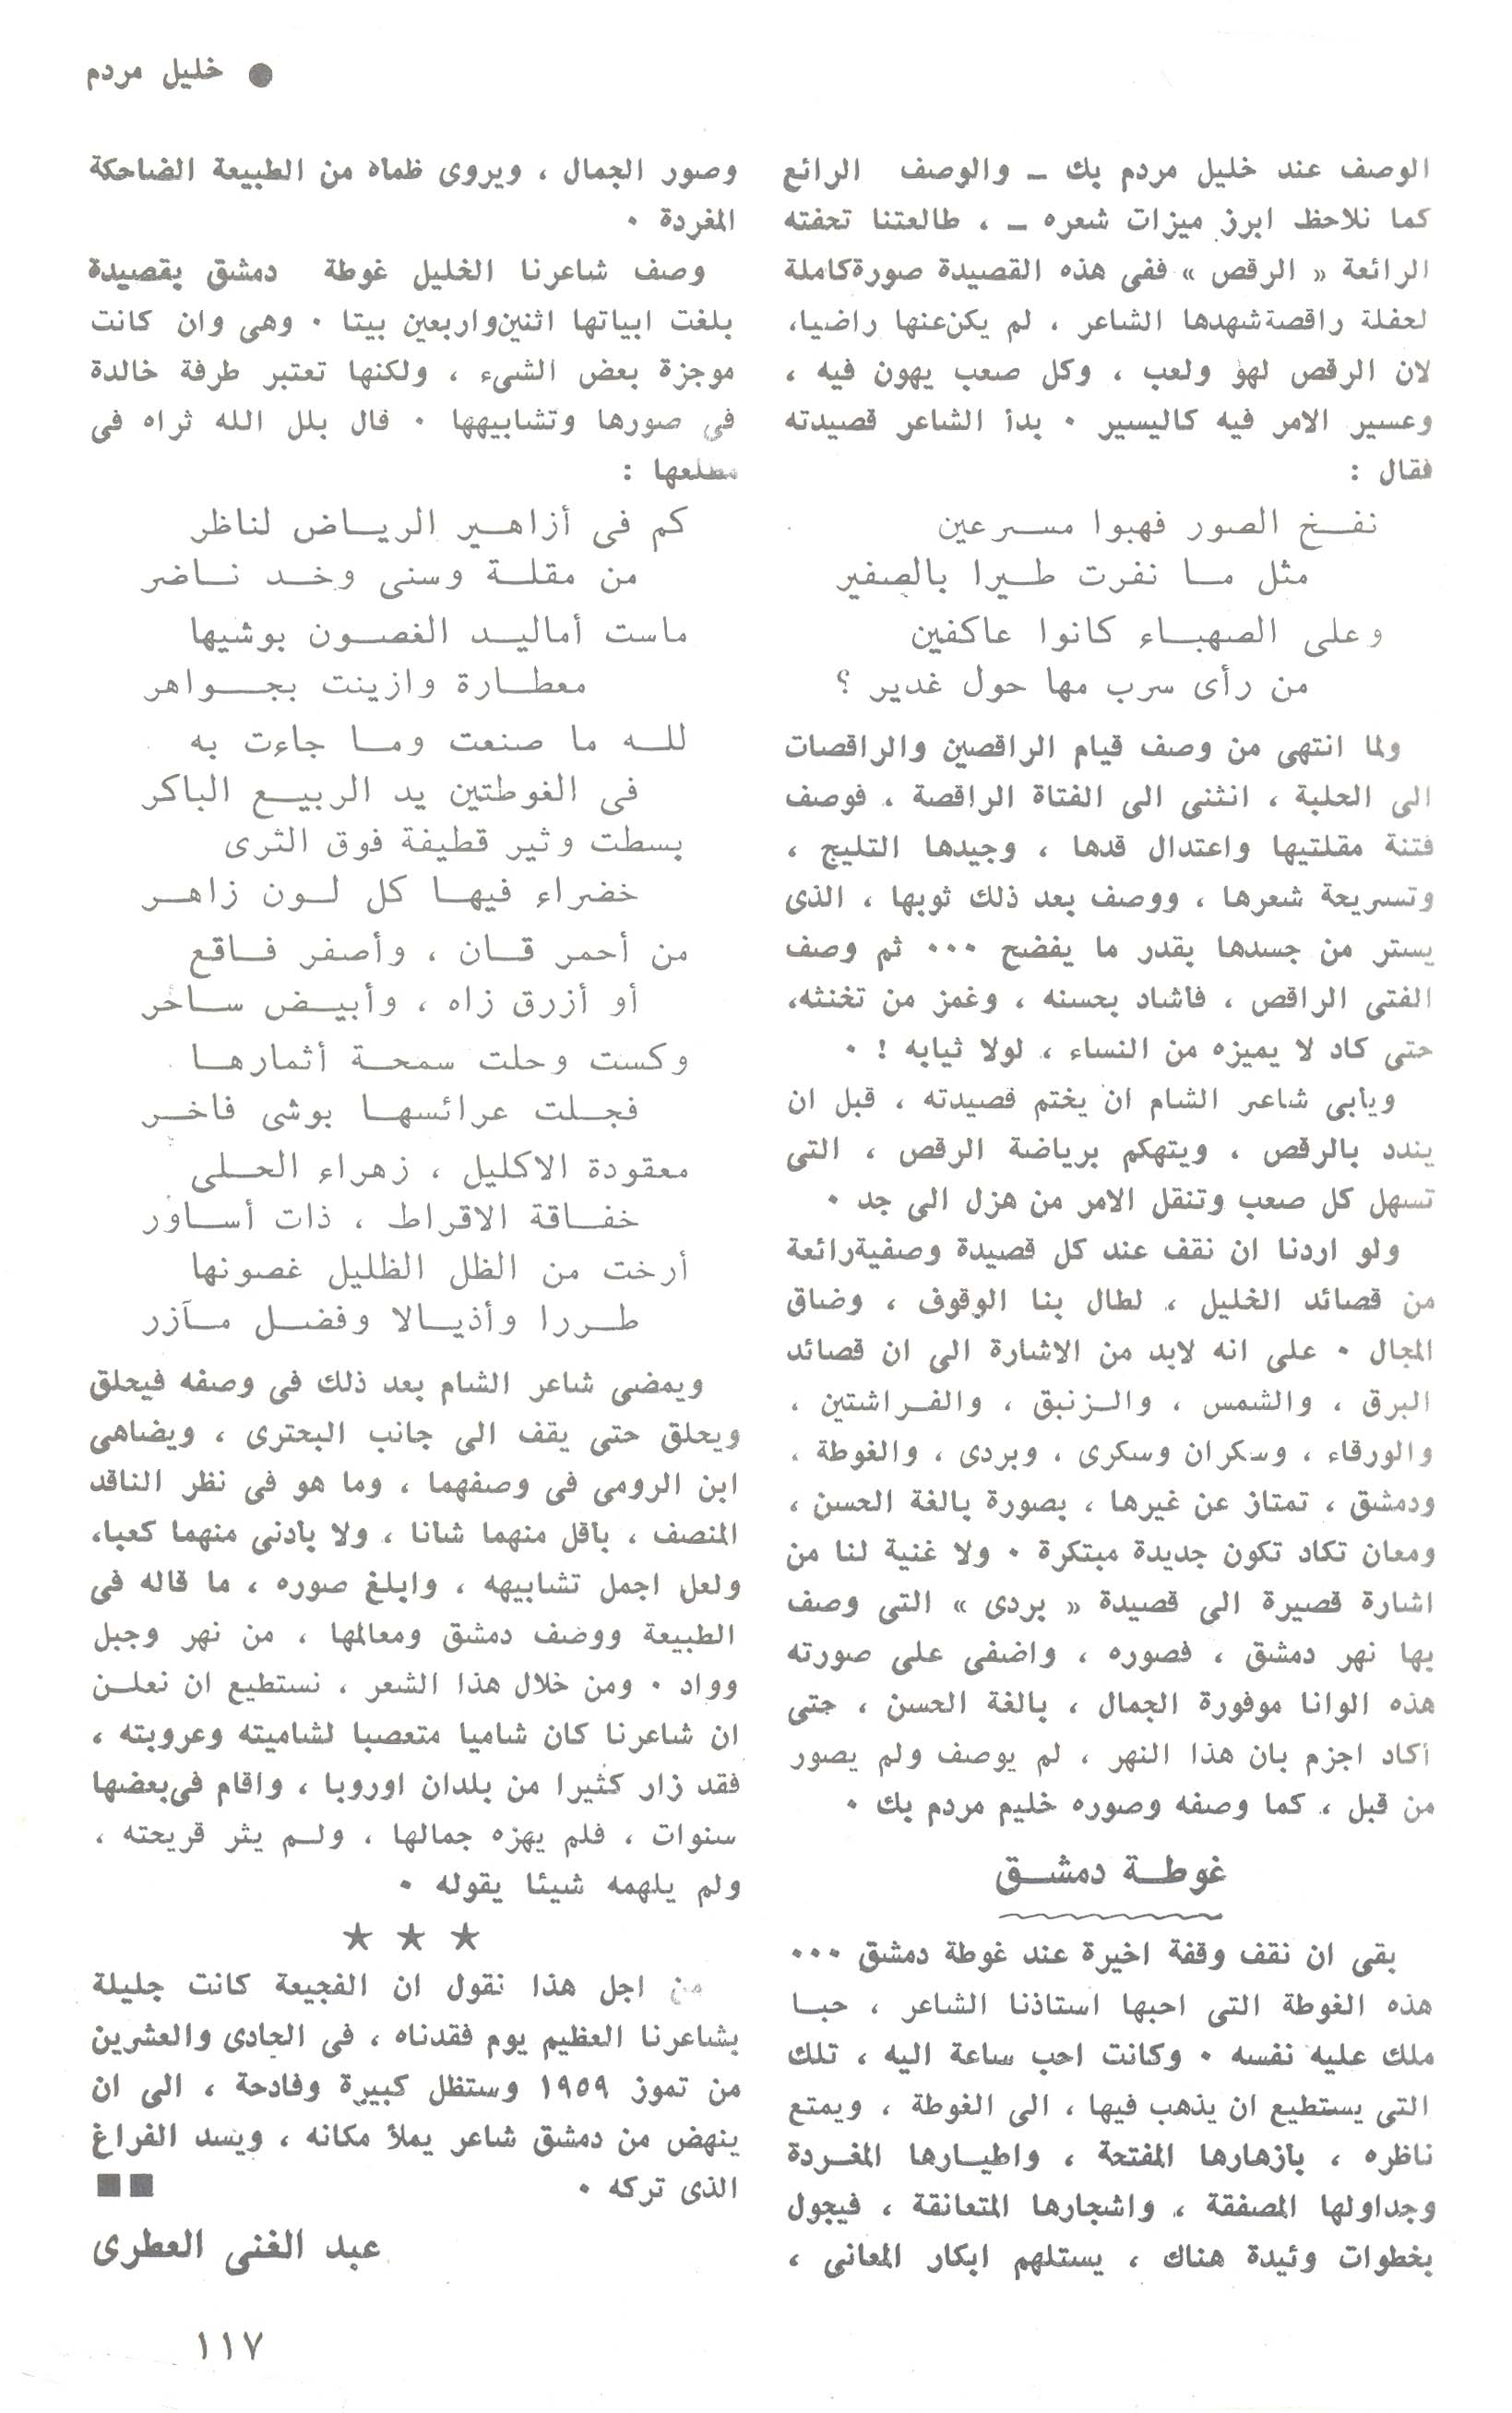 ● خليل مردم
الوصف عند خليل مردم بك ـ والوصف الرائع
كما نلاحظ ابرز ميزات شعره ـ ، طالعتنا تحفته
الرائعة « الرقص » ففى هذه القصيدة صورة كاملة
لحفلة راقصة شهدها الشاعر ، لم يكن عنها راضيا،
لان الرقص لهو ولعب ، وكل صعب يهون فيه ،
وعسير الامر فيه كاليسير ٠ بدأ الشاعر قصيدته
فقال :
نفـخ الصور فهبوا مسـرعين
مثل مـا نفرت طـيرا بالصفير
وعلى الصهبـاء كانوا عاكفين
من رأى سرب مها حول غدير ؟
ولما انتهى من وصف قيام الراقصين والراقصات
الى الحلبة ، انثنى الى الفتاة الراقصة ، فوصف
فتنة مقلتيها واعتدال قدها ، وجيدها التليج ،
وتسريحة شعرها ، ووصف بعد ذلك ثوبها ، الذى
يستر من جسدها بقدر ما يفضح ٠٠٠ ثم وصف
الفتى الراقص ، فاشاد بحسنه ، وغمز من تخنثه،
حتى كاد لا يميزه من النساء ، لولا ثيابه ! ٠
ويابى شاعر الشام ان يختم قصيدته ، قبل ان
يندد بالرقص ، ويتهكم برياضة الرقص ، التى
تسهل كل صعب وتنقل الامر من هزل الى جد ٠
ولو اردنا ان نقف عند كل قصيدة وصفية رائعة
من قصائد الخليل ، لطال بنا الوقوف ، وضاق
المجال ٠ على انه لابد من الاشارة الى ان قصائد
البرق ، والشمس ، والـزنبق ، والفـراشتين ،
والورقاء ، وسكران وسكرى ، وبردى ، والغوطة ،
ودمشق ، تمتاز عن غيرها ، بصورة بالغة الحسن ،
ومعان تكاد تكون جديدة مبتكرة ٠ ولا غنية لنا من
اشارة قصيرة الى قصيدة « بردى » التى وصف
بها نهر دمشق ، فصوره ، واضفى على صورته
هذه الوانا موفورة الجمال ، بالغة الحسن ، حتى
اكاد اجزم بان هذا النهر ، لم يوصف ولم يصور
من قبل ، كما وصفه وصوره خليم مردم بك ٠
غوطـة دمشـق
بقى ان نقف وقفة اخيرة عند غوطة دمشق ٠٠٠
هذه الغوطة التى احبها استاذنا الشاعر ، حبـا
ملك عليه نفسه ٠ وكانت احب ساعة اليه ، تلك
التى يستطيع ان يذهب فيها ، الى الغوطة ، ويمتع
ناظره ، بازهارها المفتحة ، واطيـارها المغـردة
وجداولها المصفقة ، واشجارها المتعانقة ، فيجول
بخطوات وئيدة هناك ، يستلهم ابكار المعانى ،
وصور الجمال ، ويروى ظماه من الطبيعة الضاحكة
المغردة ٠
وصف شاعرنا الخليل غوطة دمشق بقصيدة
بلغت ابياتها اثنين واربعين بيتا ٠ وهى وان كانت
موجزة بعض الشىء ، ولكنها تعتبر طرفة خالدة
فى صورها وتشابيهها ٠ قال بلل الله ثراه فى
مطلعها :
كم فى أزاهـير الريـاض لناظر
من مقلـة وسنى وخـد نـاضر
ماست أماليـد الغصـون بوشيها
معطـارة وازينت بجـواهر
للـه ما صنعت ومـا جاءت به
فى الغوطتين يد الربيـع الباكر
بسطت وثير قطيفة فوق الثرى
خضراء فيهـا كل لـون زاهـر
من أحمر قـان ، وأصفر فـاقع
أو أزرق زاه ، وأبيـض سـاخر
وكست وحلت سمحـة أثمارهـا
فجـلت عرائسهـا بوشى فاخـر
معقودة الاكليل ، زهراء الحـلى
خفـاقة الاقراط ، ذات أسـاور
أرخت من الظل الظليل غصونها
طـررا وأذيـالا وفضـل مـآزر
ويمضى شاعر الشام بعد ذلك فى وصفه فيحلق
ويحلق حتى يقف الى جانب البحترى ، ويضاهى
ابن الرومى فى وصفهما ، وما هو فى نظر الناقد
المنصف ، باقل منهما شانا ، ولا بادنى منهما كعبا،
ولعل اجمل تشابيهه ، وابلغ صوره ، ما قاله فى
الطبيعة ووصف دمشق ومعالمها ، من نهر وجبل
وواد ٠ ومن خلال هذا الشعر ، نستطيع ان نعلـن
ان شاعرنا كان شاميا متعصبا لشاميته وعروبته ،
فقد زار كثيرا من بلدان اوروبا ، واقام فى بعضها
سنوات ، فلم يهزه جمالها ، ولـم يثر قريحته ،
ولم يلهمه شيئا يقوله ٠
★ ★ ★
من اجل هذا نقول ان الفجيعة كانت جليلة
بشاعرنا العظيم يوم فقدناه ، فى الحادى والعشرين
من تموز ١٩٥٩ وستظل كبيرة وفادحة ، الى ان
ينهض من دمشق شاعر يملأ مكانه ، ويسد الفراغ
الذى تركه ٠ ■■
عبد الغنى العطرى
١١٧